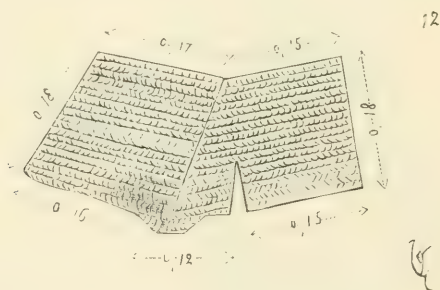 12
0,17
0,15
0,18
0,18
0,15
0,15
0,12